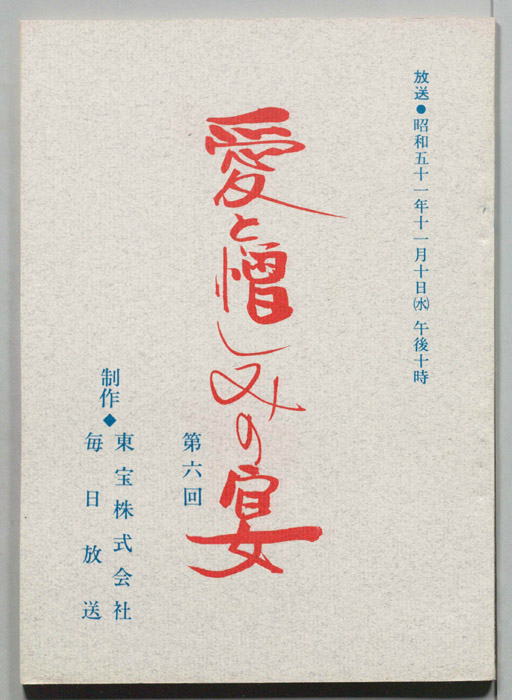 放送●昭和五十一年十一月十日㈬ 午後十時
愛と憎しみの宴
第六回
制作◆
東宝株式会社
毎日放送